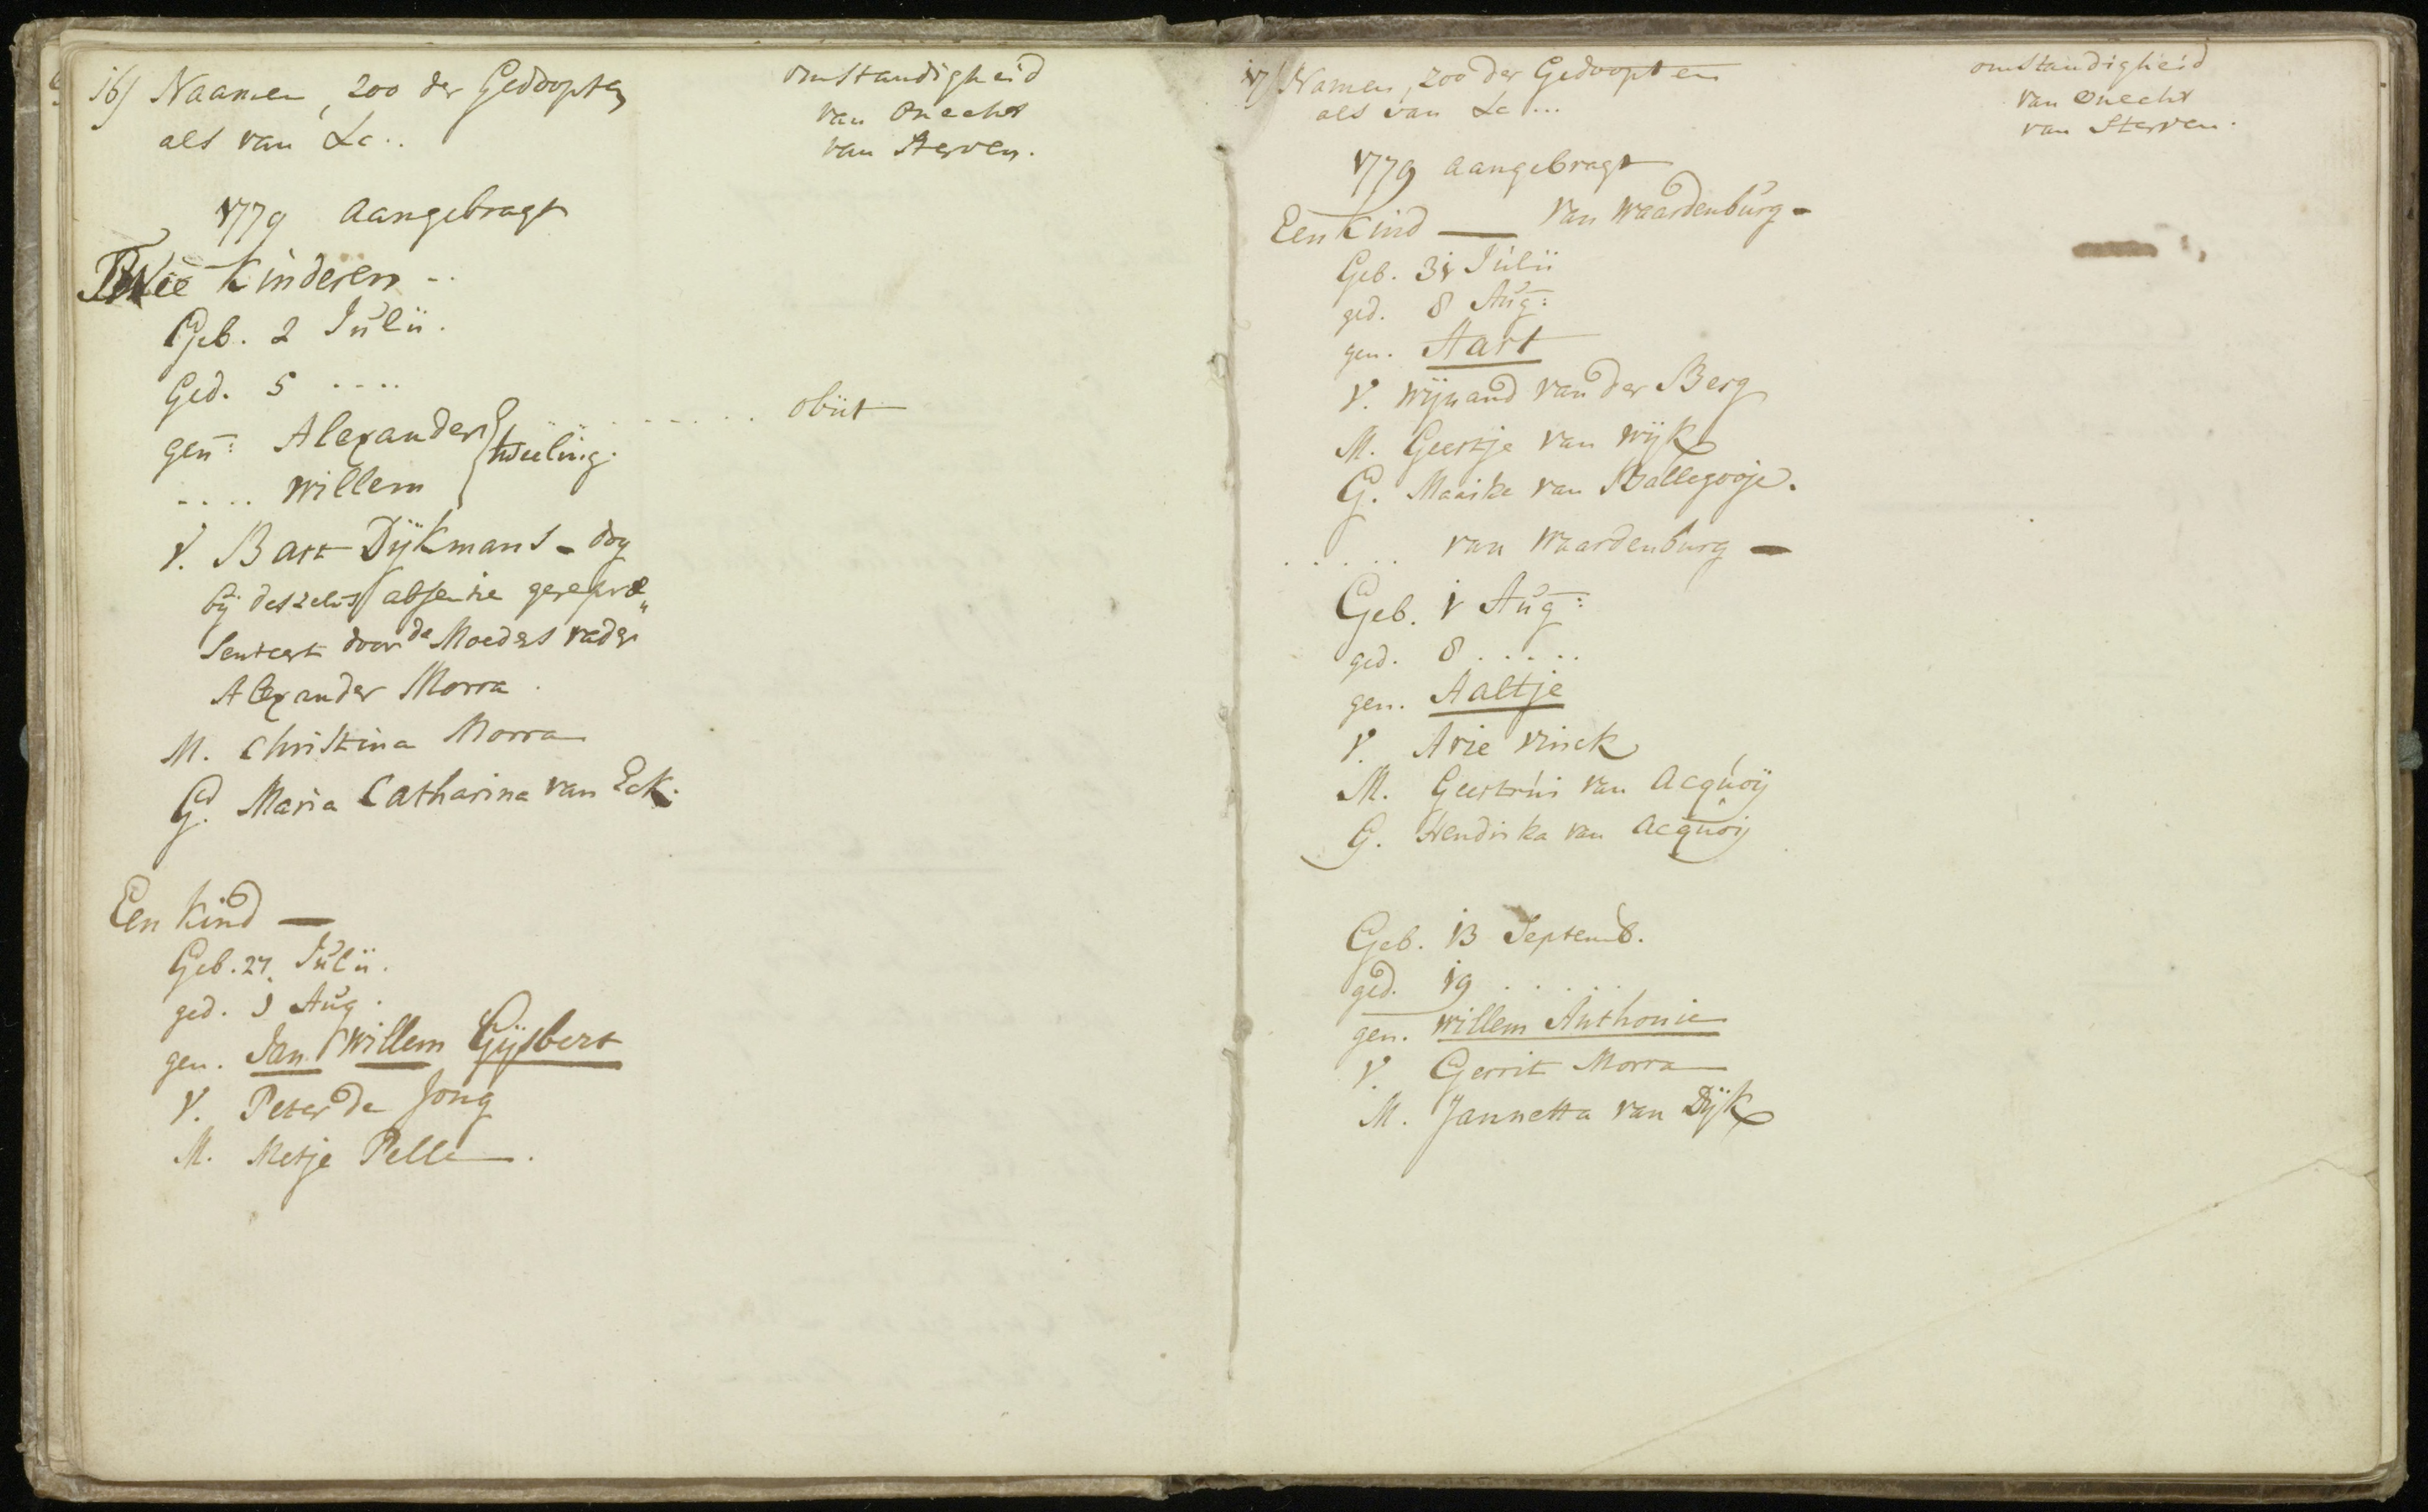 16) Naamen, zoo der Gedoopten
als van &c..
omstandigheid
van onecht
van sterven.
1779 aangebragt
Twee kinderen ..
Geb. 2 Julii.
Ged. 5 ....
gen: Alexander } tweeling. ..... obiit
.... Willem
V. Bart Dijkmans - dog
bij deszelvs absentie gerepræ„
senteert door de Moeders vader
Alexander Morra.
M. Christina Morra
G. Maria Catharina van Eck.
Een kind —
Geb. 27 Julii.
ged. 1 Aug.
gen. Jan Willem Gijsbert
V. Peter de Jong
M. Metje Pelle.
17) Namen, zoo der Gedoopten
als van &c...
omstandigheid
van onecht
van sterven.
1779 aangebragt
Een kind — van Waardenburg -
Geb. 31 Julii
ged. 8 Aug:
gen. Aart
V. Wijnand van der Berg
M. Geertje van Wijk
G. Maaike van Ballegooje.
..... van Waardenburg —
Geb. 1 Aug:
ged. 8 .....
gen. Aaltje
V. Arie Vinck
M. Geertrui van Acquoij
G. Hendrika van Acquoij
Geb. 13 Septemb.
ged. 19 .....
gen. Willem Anthonie
V. Gerrit Morra
M. Jannetta van Dijk